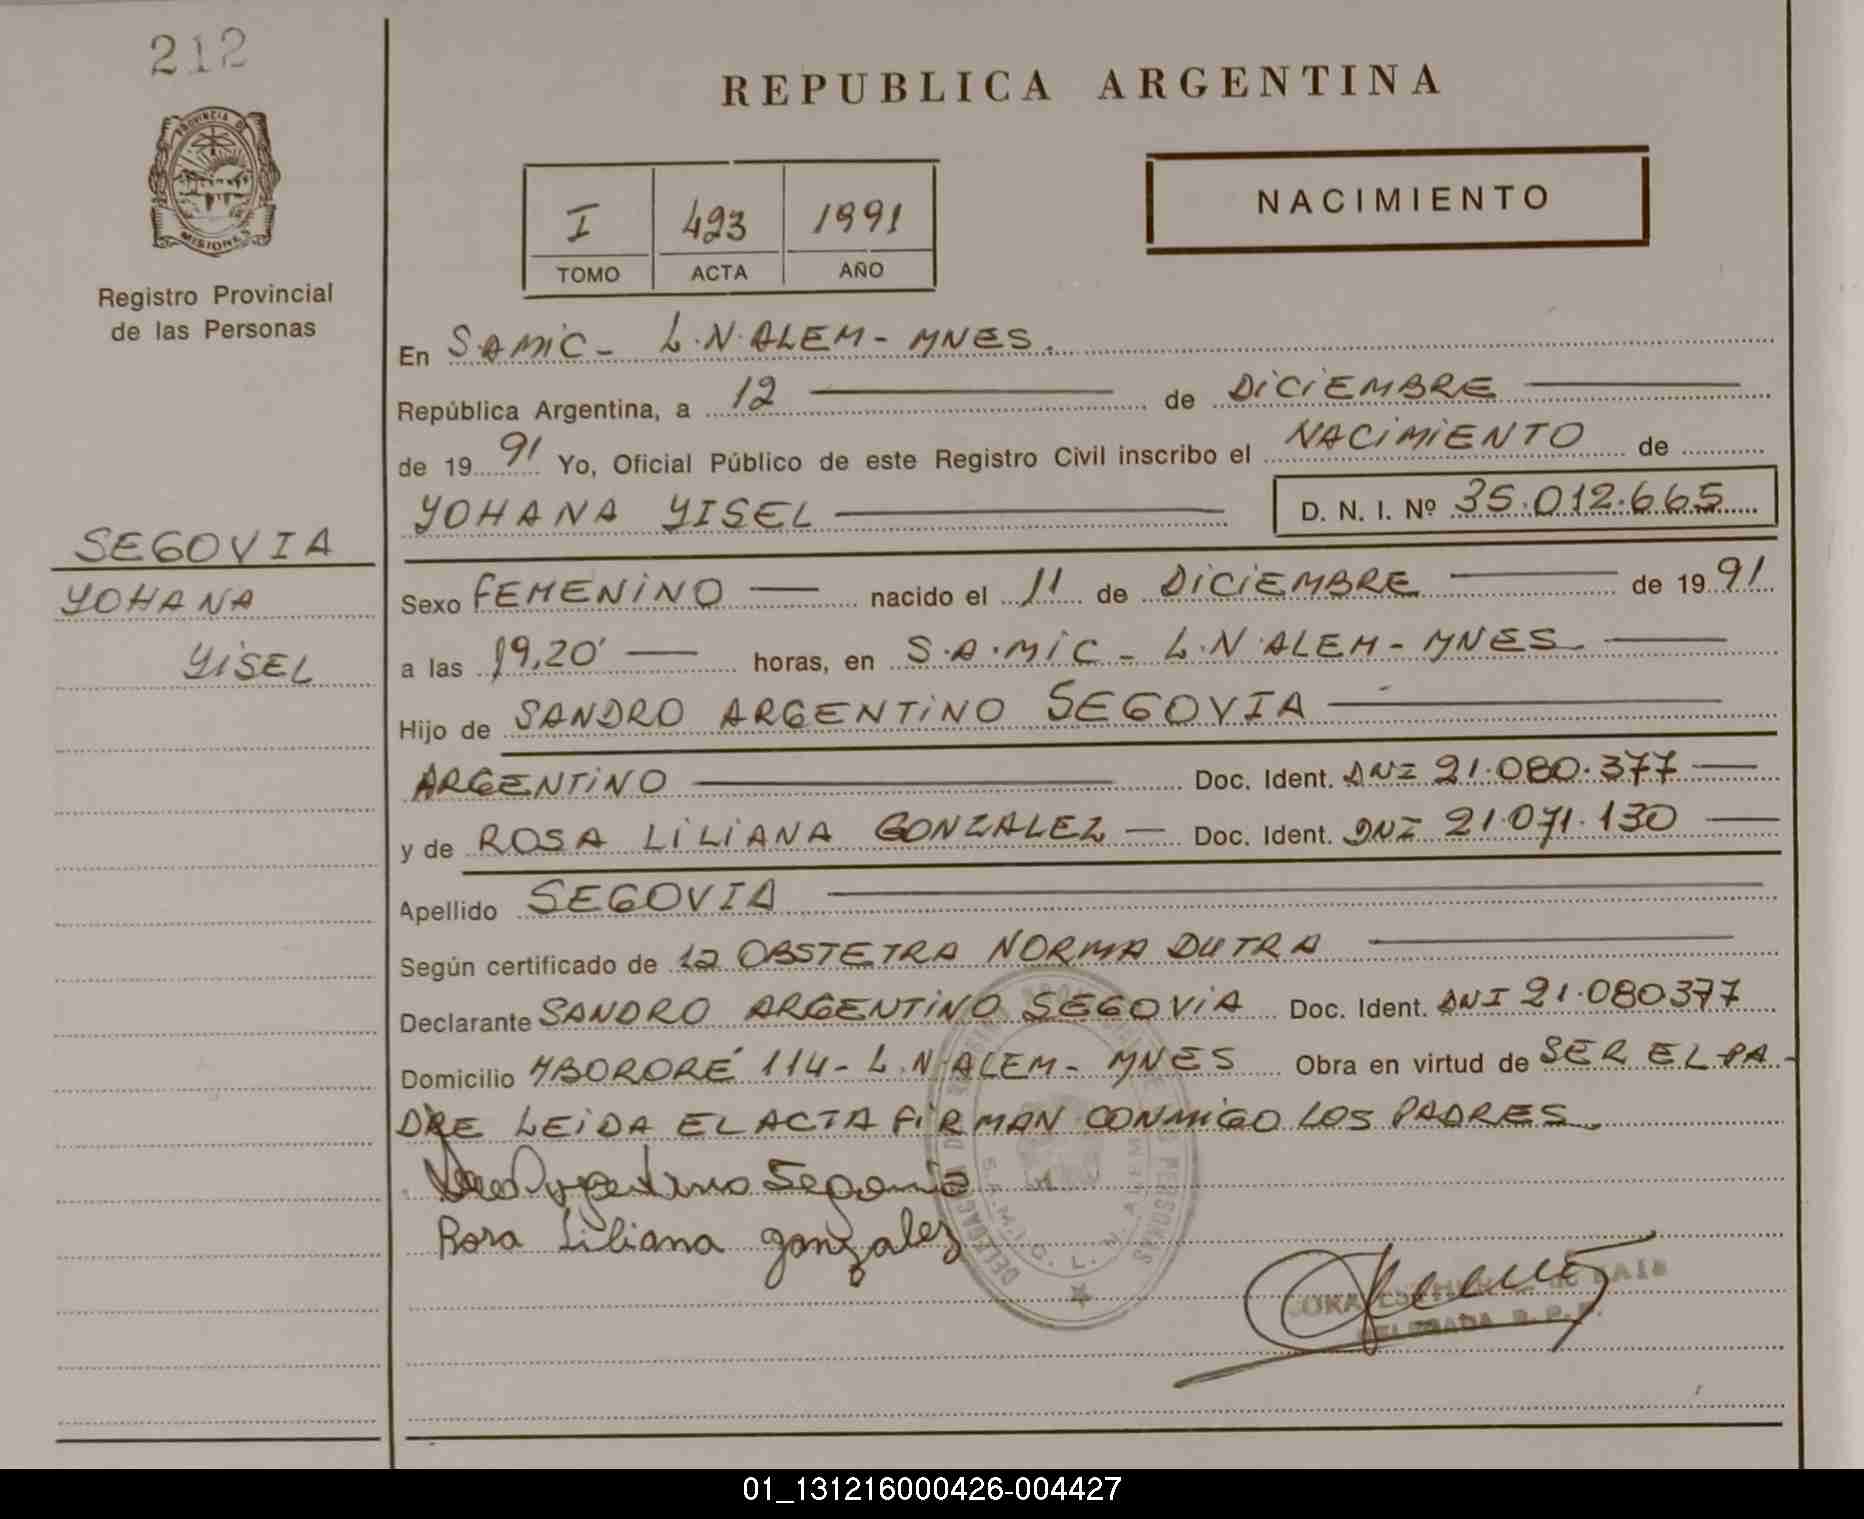 212
PROVINCIA DE
MISIONES
Registro Provincial
de las Personas
SEGOVIA
YOHANA
YISEL
REPUBLICA ARGENTINA
I 493 1991
TOMO ACTA AÑO
NACIMIENTO
En S.A.MIC - L.N.ALEM - MNES.
República Argentina, a 12 de DICIEMBRE
de 1991 Yo, Oficial Público de este Registro Civil inscribo el NACIMIENTO de
YOHANA YISEL D. N. I. Nº 35.012.665
Sexo FEMENINO nacido el 11 de DICIEMBRE de 1991
a las 19,20' horas, en S.A.MIC - L.N ALEM - MNES
Hijo de SANDRO ARGENTINO SEGOVIA
ARGENTINO Doc. Ident. DNI 21.080.377
y de ROSA LILIANA GONZALEZ Doc. Ident. DNI 21.071.130
Apellido SEGOVIA
Según certificado de la OBSTETRA NORMA DUTRA
Declarante SANDRO ARGENTINO SEGOVIA Doc. Ident. DNI 21.080377
Domicilio MBORORÉ 114 - L.N.ALEM - MNES Obra en virtud de SER EL PA-
DRE LEIDA EL ACTA FIRMAN CONMIGO LOS PADRES
Segovia
Rosa Liliana gonzalez
DELEGADA R.P.P.
01_131216000426-004427